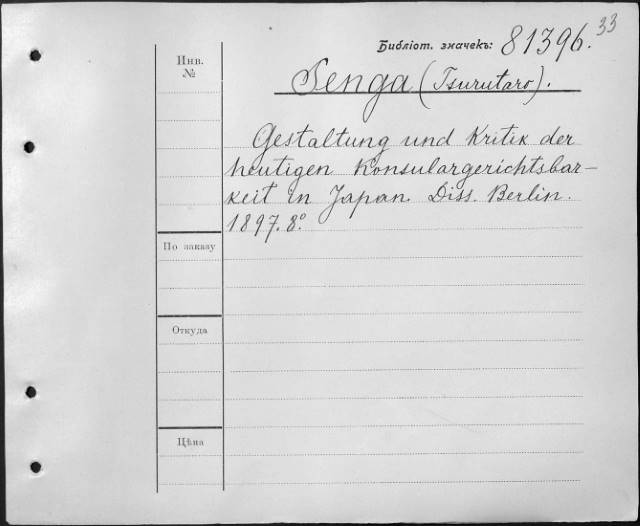 33
Библіот. значекъ: 81396.
Инв.
№
Senga (Tsurutaro).
Gestaltung und Kritik der
heutigen Konsulargerichtsbar-
keit in Japan. Diss. Berlin.
1897. 8°.
По заказу
Откуда
Цѣна